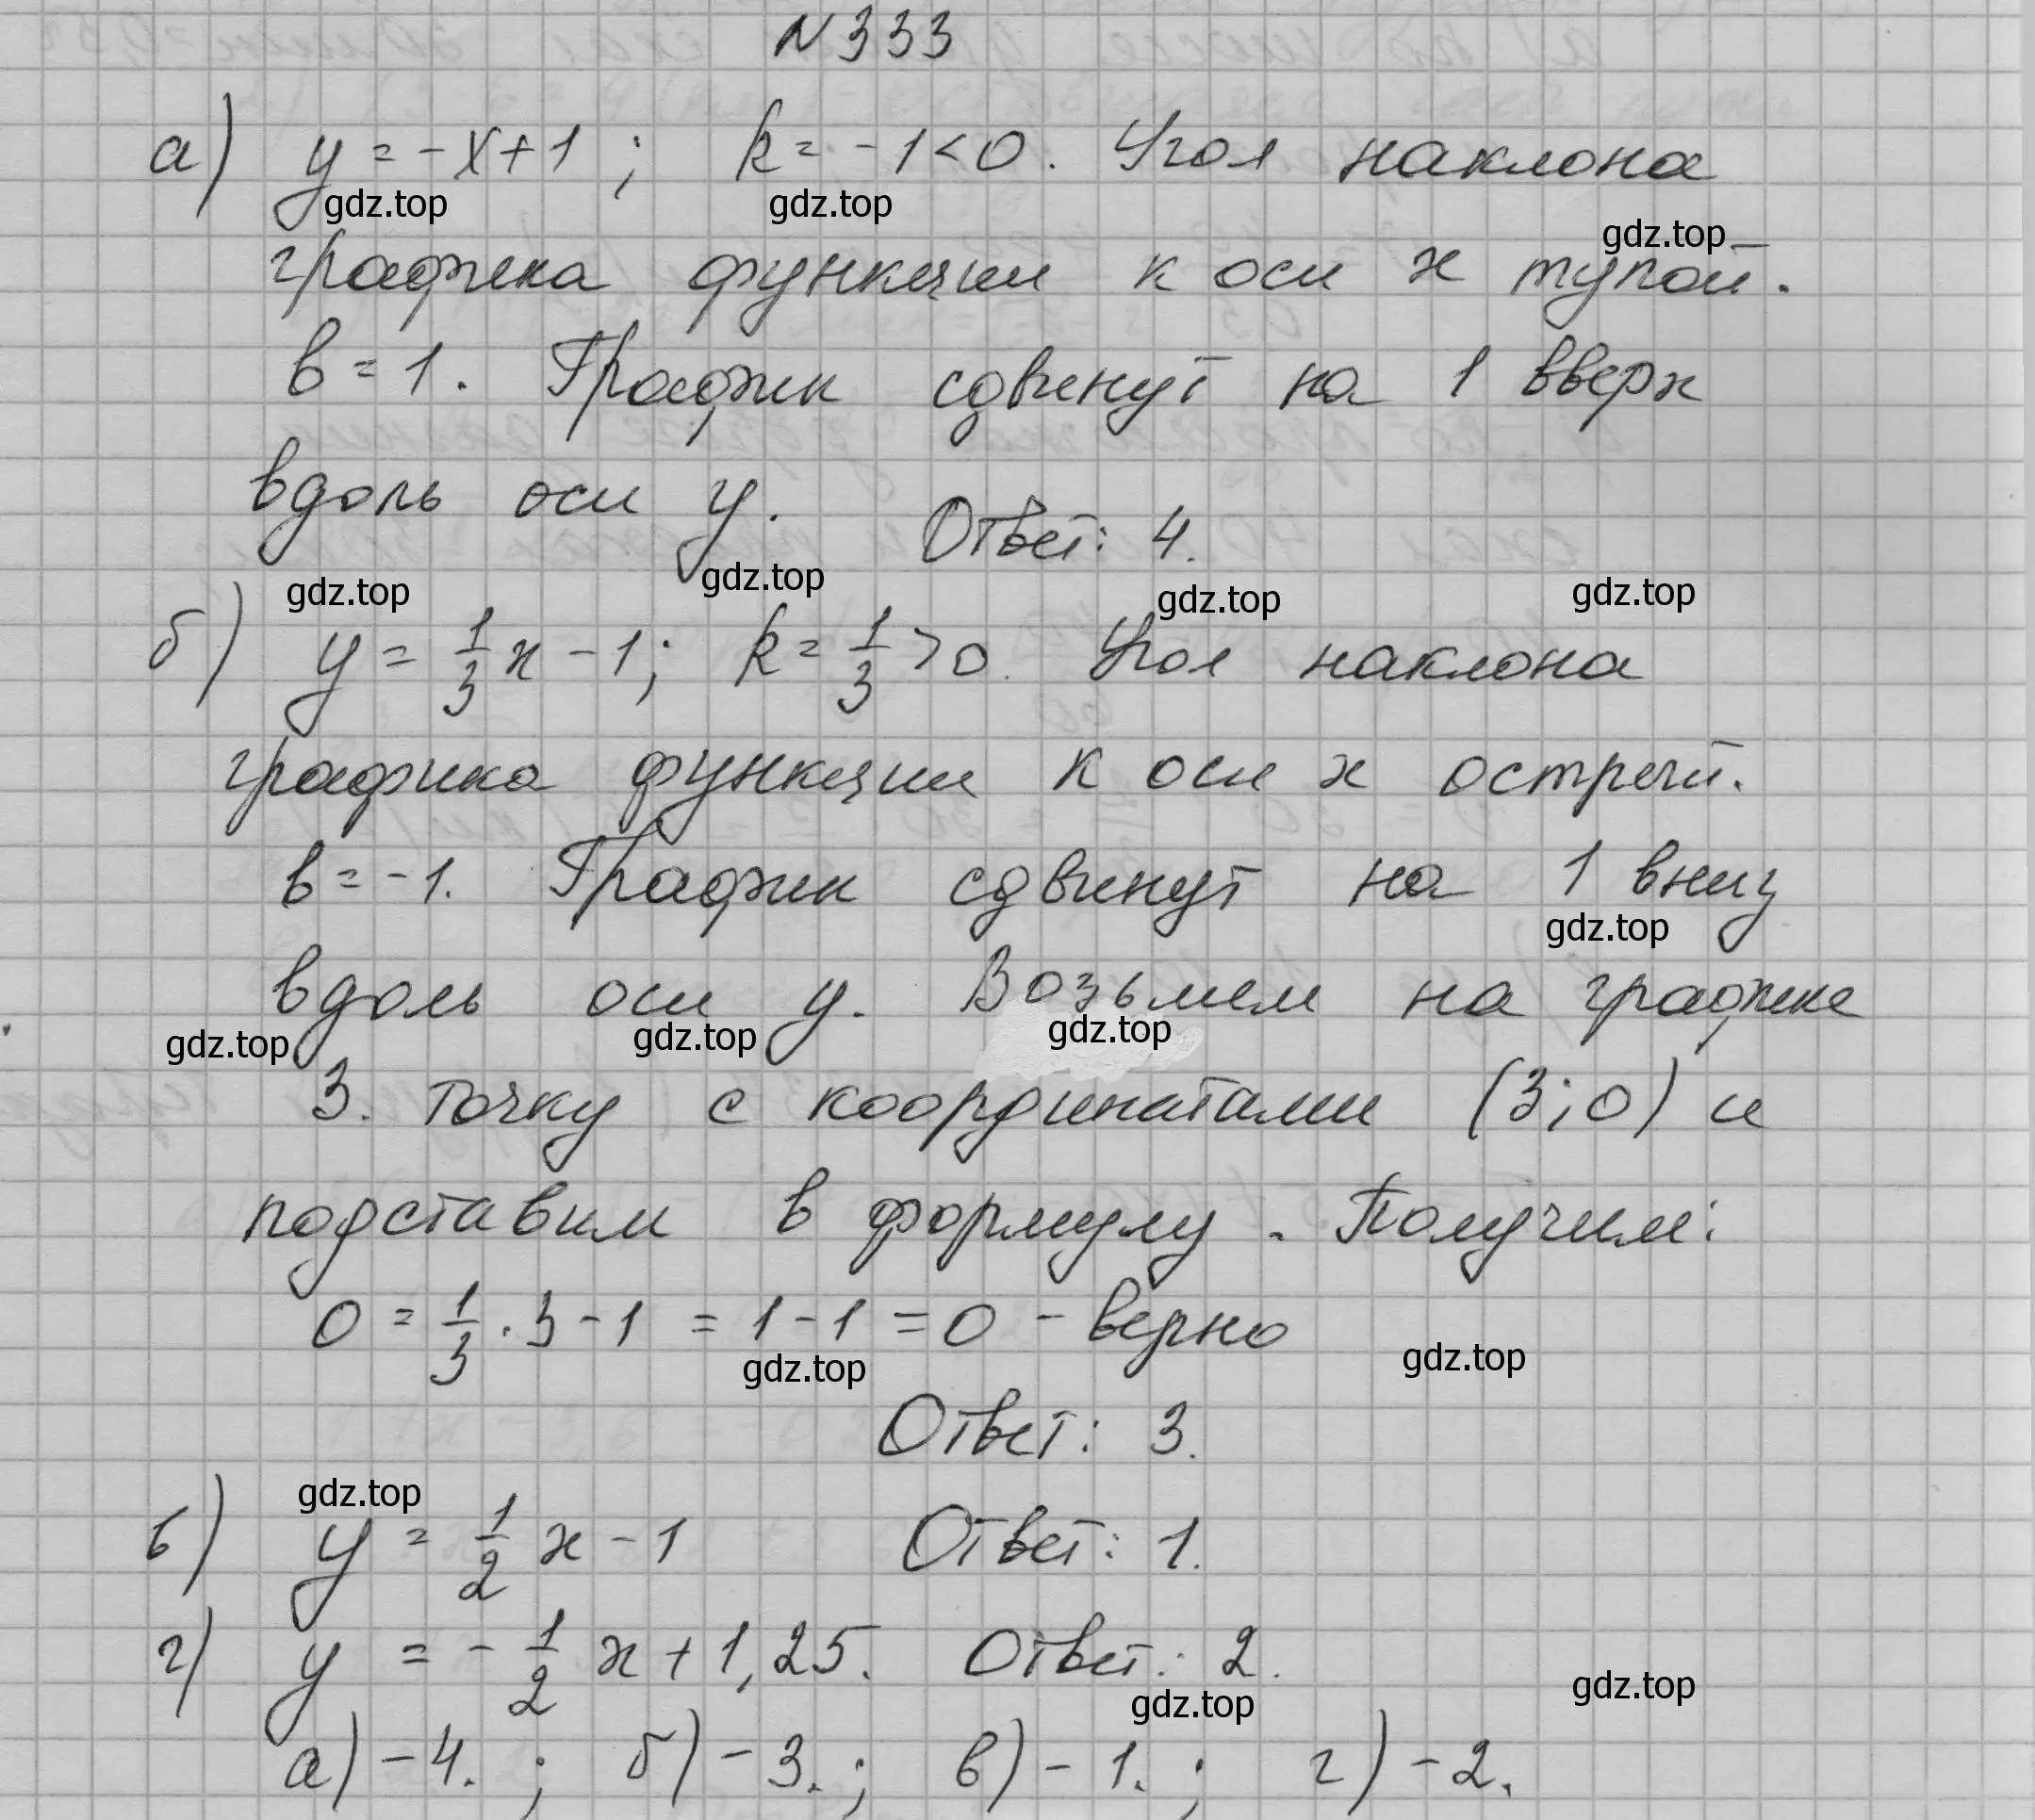 N 333
а) y = -x+1 ; k = -1<0. Угол наклона
gdz.top gdz.top gdz.top
графика функции к оси x тупой.
b = 1. График сдвинут на 1 вверх
вдоль оси y. Ответ: 4.
gdz.top gdz.top gdz.top gdz.top
б) y = 1/3 x - 1; k = 1/3 > 0. Угол наклона
графика функции к оси x острый.
b = -1. График сдвинут на 1 вниз
gdz.top
вдоль оси y. Возьмем на графике
gdz.top gdz.top gdz.top
3. точку с координатами (3; 0) и
подставим в формулу. Получим:
0 = 1/3 · 3 - 1 = 1 - 1 = 0 - верно
gdz.top gdz.top
Ответ: 3.
gdz.top
в) y = 1/2 x - 1 Ответ: 1.
г) y = - 1/2 x + 1,25. Ответ: 2.
gdz.top gdz.top
а) - 4. ; б) - 3. ; в) - 1. ; г) - 2.